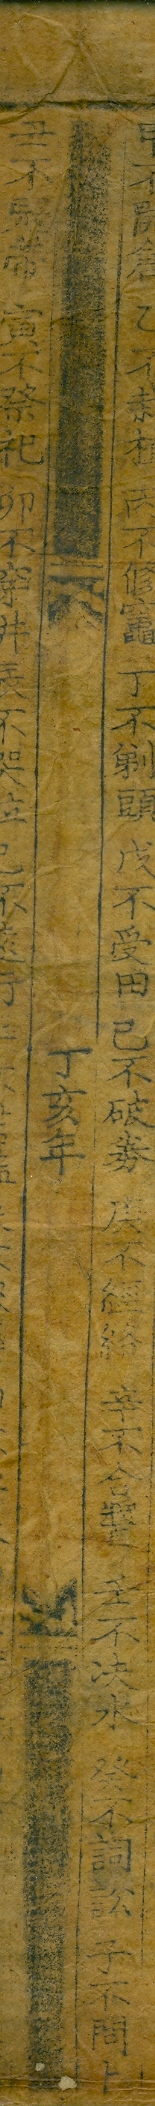 甲不開倉 乙不栽植 丙不修竈 丁不剃頭 戊不受田 己不破券 庚不經絡 辛不合醬 壬不决水 癸不詞訟 子不問卜
丁亥年
丑不冠帶 寅不祭祀 卯不穿井 辰不哭泣 巳不遠行